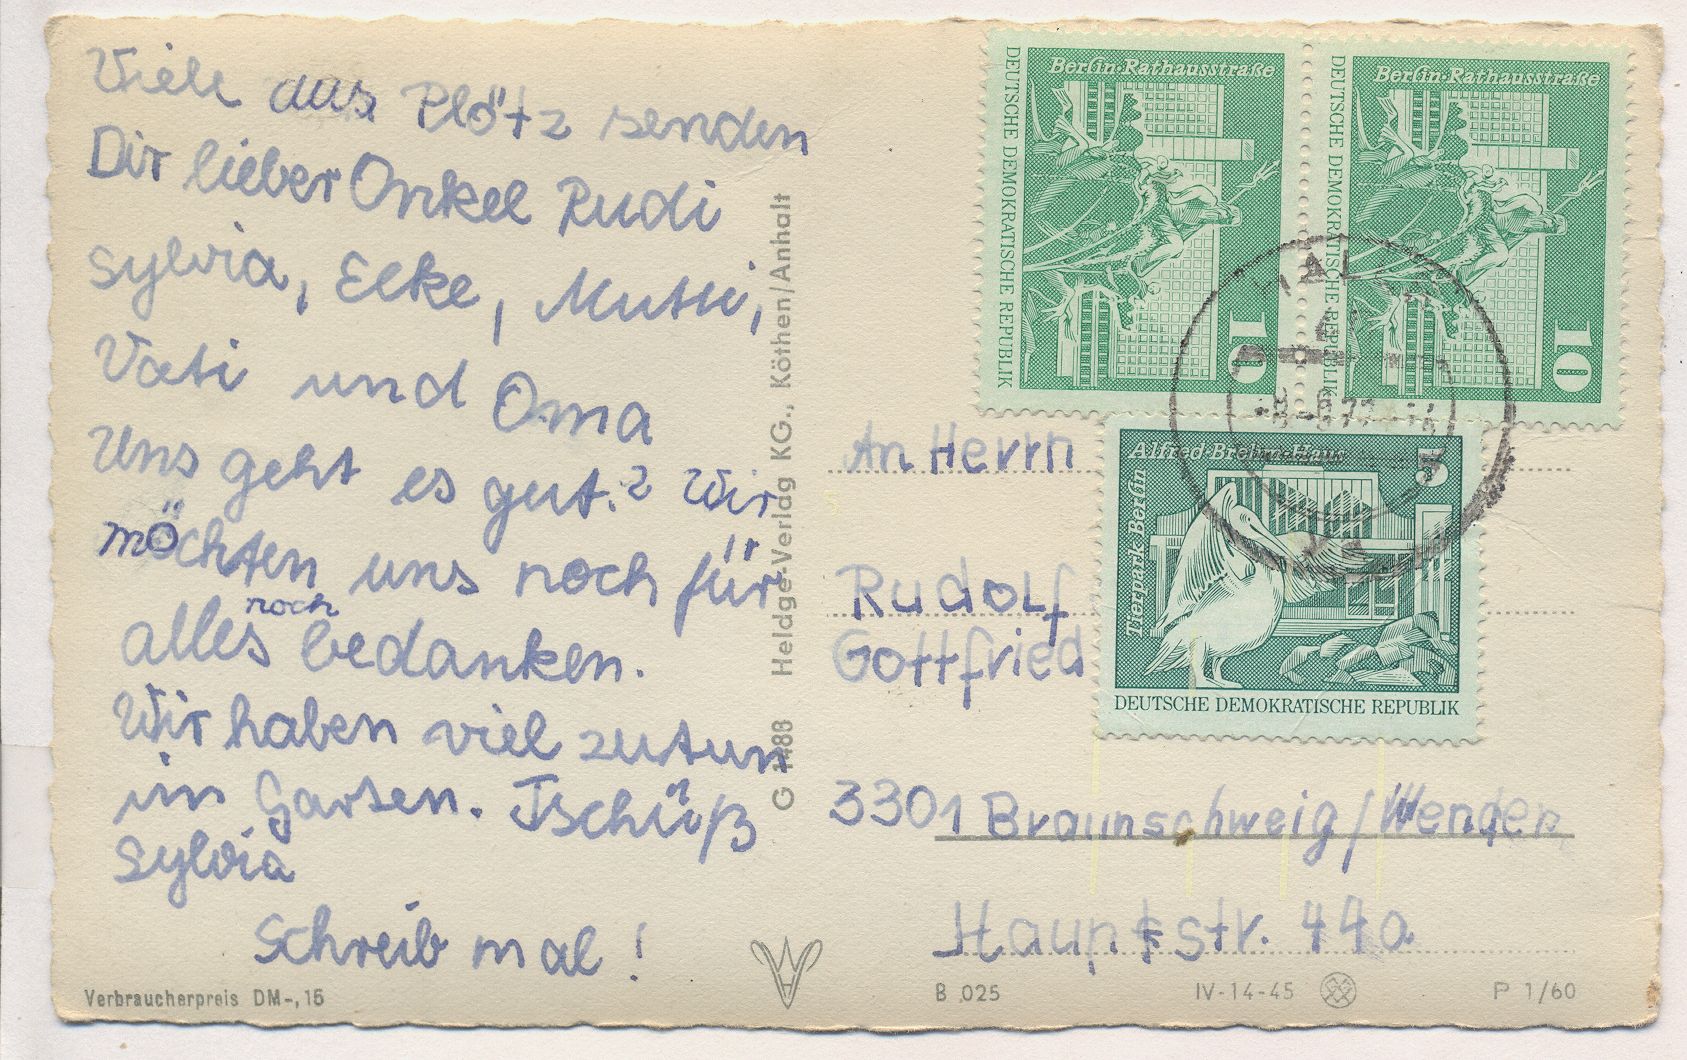 Viele aus Plötz senden
Dir lieber Onkel Rudi
Sylvia, Elke, Mutti,
Vati und Oma
Uns geht es gut.? Wir
möchten uns noch für
alles noch bedanken.
Wir haben viel zutun
im Garten. Tschüß
Sylvia
Schreib mal!
Verbraucherpreis DM -,15
G 1488 Heldge-Verlag KG., Köthen/Anhalt
Berlin-Rathausstraße
DEUTSCHE DEMOKRATISCHE REPUBLIK
10
Berlin-Rathausstraße
DEUTSCHE DEMOKRATISCHE REPUBLIK
10
Alfred-Brehm-Haus
5
Tierpark Berlin
DEUTSCHE DEMOKRATISCHE REPUBLIK
An Herrn
Rudolf
Gottfried
3301 Braunschweig/Wenden
Hauptstr. 44a
B 025
IV-14-45
P 1/60